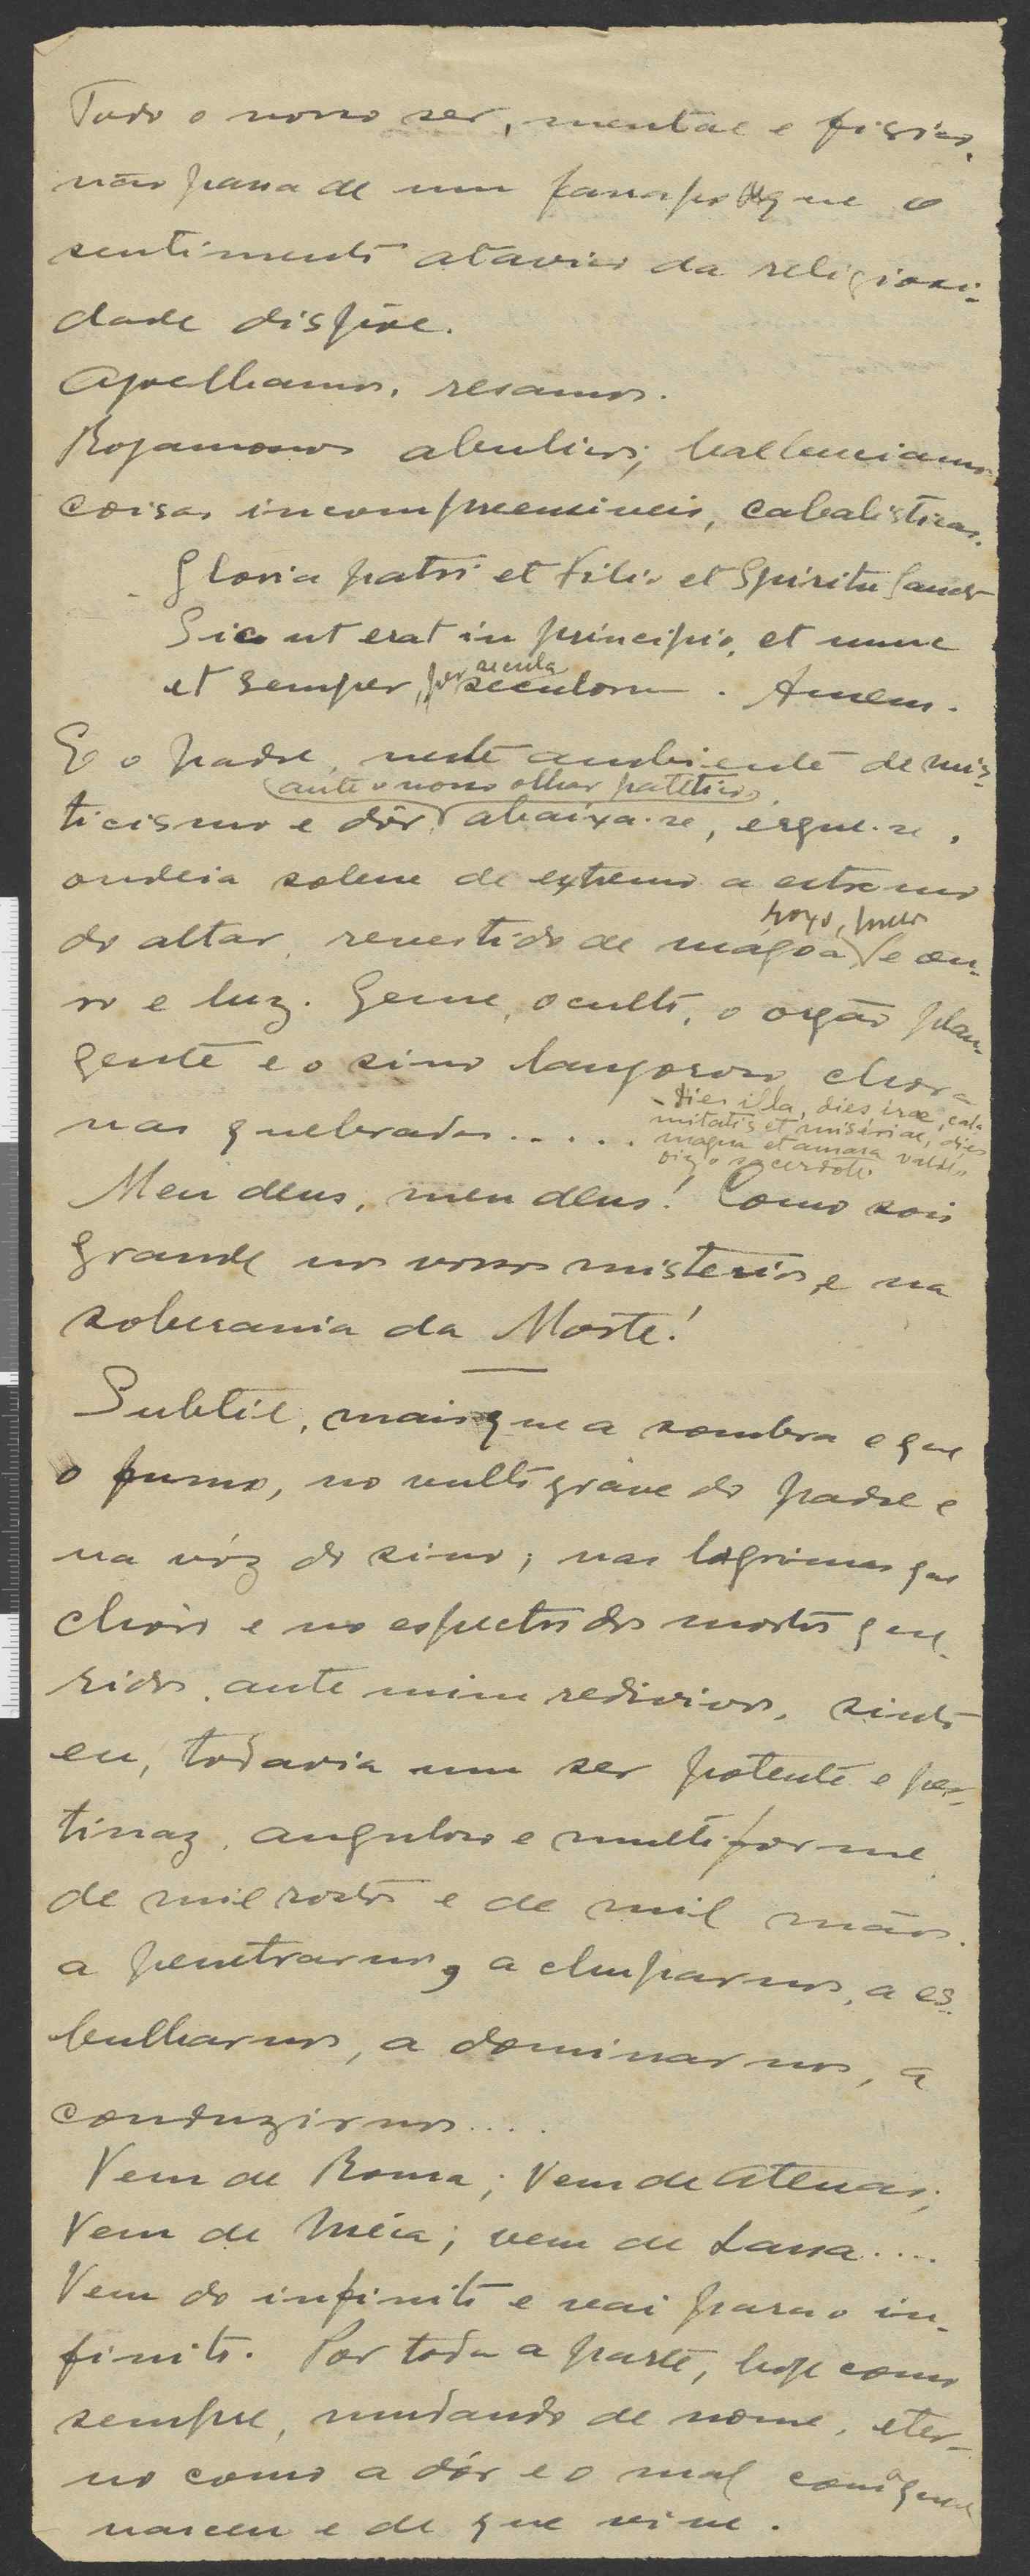 Todo o nosso ser, mental e fisico,
não passa de um farrapo que o
sentimento atavico da religiosi-
dade dispõe.
Ajoelhamos, resamos.
Rojamonos abulicos; balbuciamos
coisas incompreensiveis, cabalisticas.
Gloria patri et Filio et Spiritu Sancto
Sicut erat in principio, et nunc
et semper, per secula seculorum. Amem.
E o padre, neste ambiente de mis-
ticismo e dôr, (ante o nosso olhar patetico), abaixa-se, ergue-se,
ondeia solene de extremo a extremo
do altar, revestido de mágoa, roxo, preto e ou-
ro e luz. Geme, oculto, o orgão plan-
gente e o sino langoroso chora
nas quebradas..... Dies illa, dies irae, cala
mitatis et miseriae, dies
magna et amara valde,
diz o sacerdote.
Meu deus, meu deus! Como sois
grande nos vossos misterios, e na
soberania da Morte!
Subtil, mais que a sombra e que
o fumo, no vulto gráve do padre e
na vóz do sino; nas lagrimas que
chóro e no espectro dos mortos que-
ridos, ante mim redivivos, sinto
eu, todavia um ser potente e per-
tinaz, anguloso e multiforme,
de mil rostos e de mil mãos,
a penetrarnos, a chuparnos, a es-
bulharnos, a dominarnos, a
conduzirnos....
Vem de Roma; Vem de Atenas;
Vem de Méca; vem de Lassa....
Vem do infinito e vai para o in-
finito. Por toda a parte, hoje como
sempre, mudando de nome, eter-
no como a dôr e o mal com que
nasceu e de que vive.